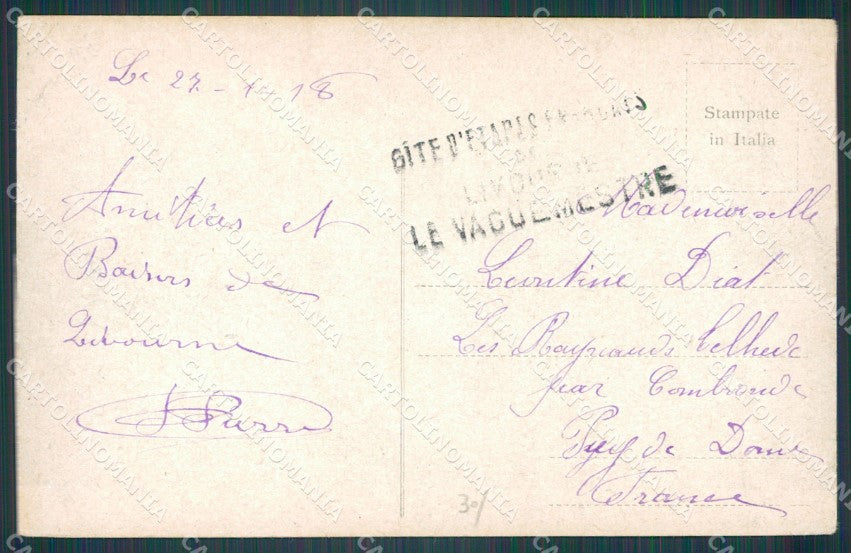 Le 27 - 18
Amitiés et
Baisers de
Livourne
Pierre
GÎTE D'ETAPES FRANÇAIS
DE
LIVOURNE
LE VAGUEMESTRE
Stampate
in Italia
Mademoiselle
Leontine Diat
Les Raynauds
par Combronde
Puy de Dome
France
30/
CARTOLINOMANIA